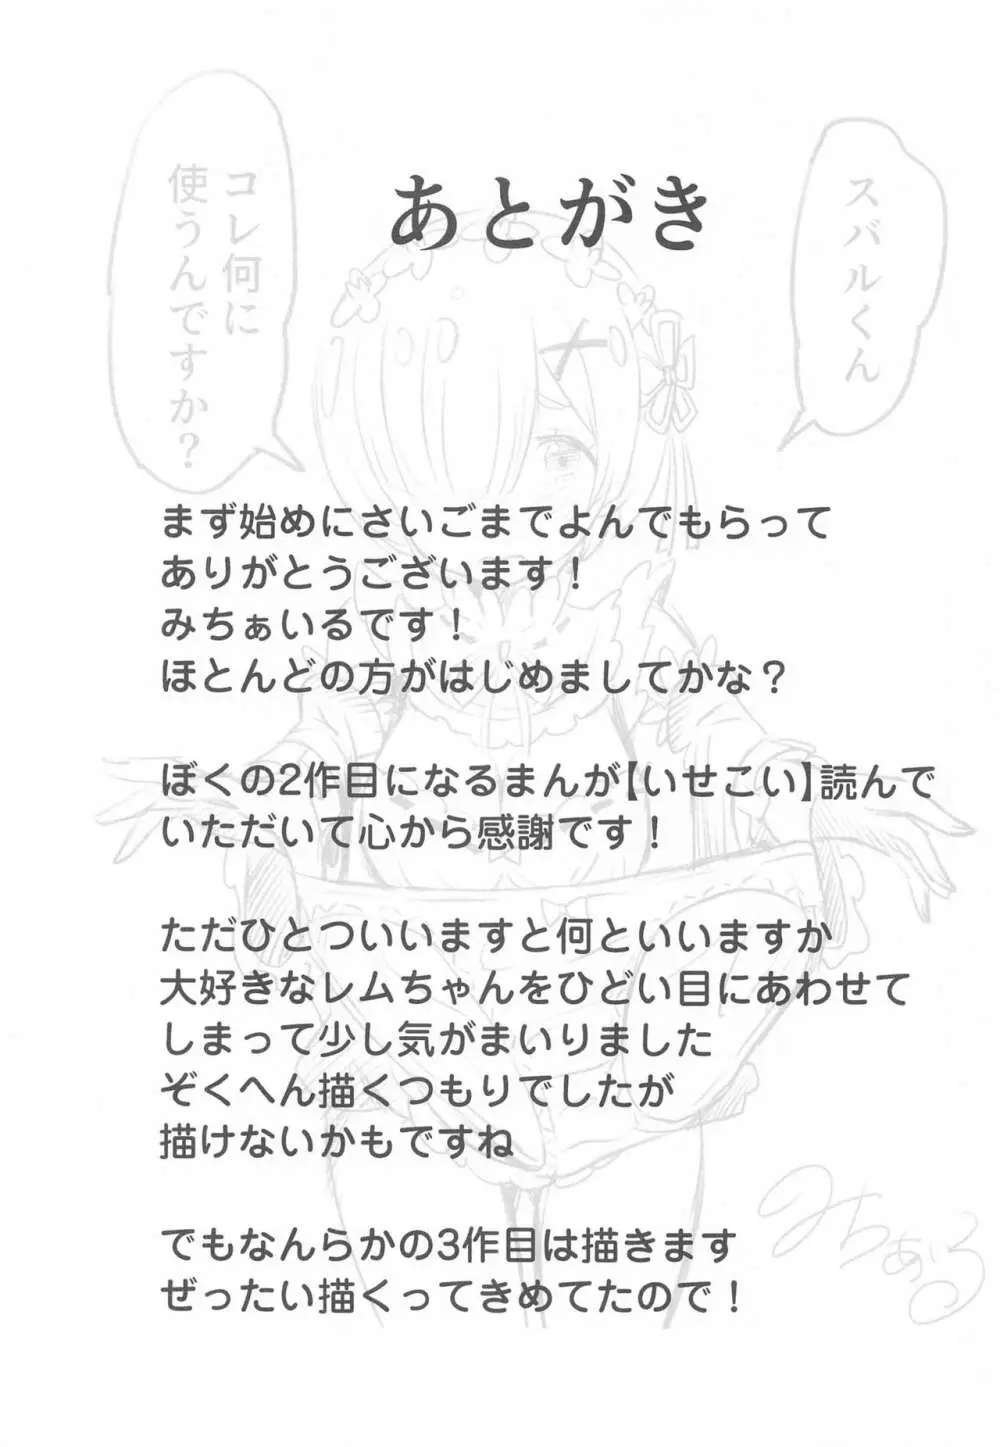 あとがき
スバルくん
コレ何に
使うんですか?
まず始めにさいごまでよんでもらって
ありがとうございます!
みちぁいるです!
ほとんどの方がはじめましてかな?
ぼくの2作目になるまんが【いせこい】読んで
いただいて心から感謝です!
ただひとついいますと何といいますか
大好きなレムちゃんをひどい目にあわせて
しまって少し気がまいりました
ぞくへん描くつもりでしたが
描けないかもですね
でもなんらかの3作目は描きます
ぜったい描くってきめてたので!
みちぁいる